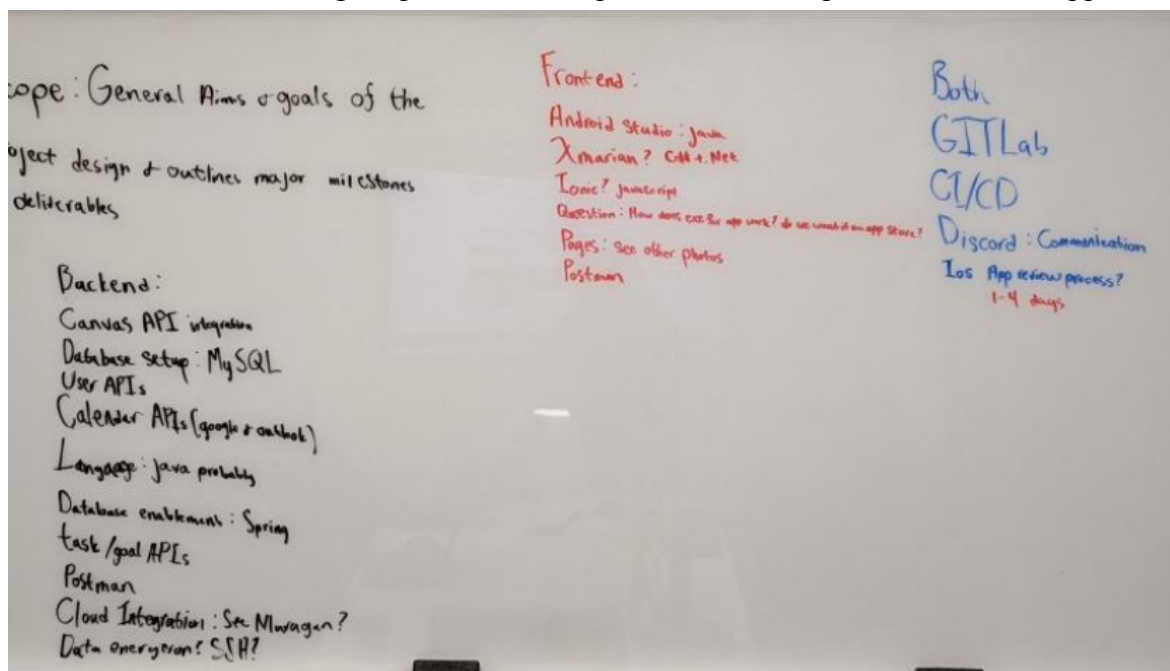 cope: General Aims & goals of the
oject design & outlines major milestones
deliverables
Backend:
Canvas API integration
Database setup: MySQL
User APIs
Calendar APIs (google & outlook)
Language: java probably
Database enablement: Spring
task/goal APIs
Postman
Cloud Integration: See Muragan?
Data SSH?
Frontend:
Android Studio: java
Xmarian? C## + .Net
Ionic? javascript
Question: How does exe for app work? do we want it on app store?
Pages: see other photos
Postman
Both
GITLab
CI/CD
Discord: Communication
Ios App review process?
1-4 days